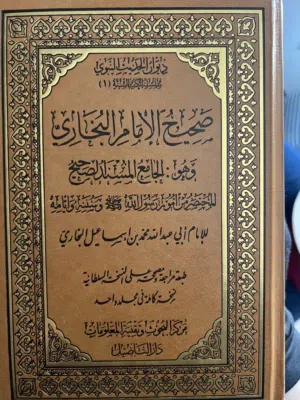 ديوان الحديث النبوي
(١)
صحيح الإمام البخاري
وهو: الجامع المسند الصحيح
المختصر من أمور رسول الله ﷺ وسننه وأيامه
للإمام أبي عبد الله محمد بن إسماعيل البخاري
طبعة مراجعة على النسخة السلطانية
نسخة كاملة في مجلد واحد
مركز البحوث وتقنية المعلومات
دار التأصيل